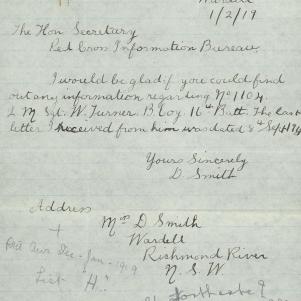 Wardell
1/2/19
The Hon. Secretary
Red Cross Information Bureau.
I would be glad if you could find
out any information regarding No 1104
Q M Sgt. W. Turner. B Coy. 16th Batt. The last
letter I received from him was dated 8th Sept 17
Yours Sincerely
D. Smith
Address
Mrs D Smith
Wardell
Richmond River
N. S. W
Jan. 1919
List